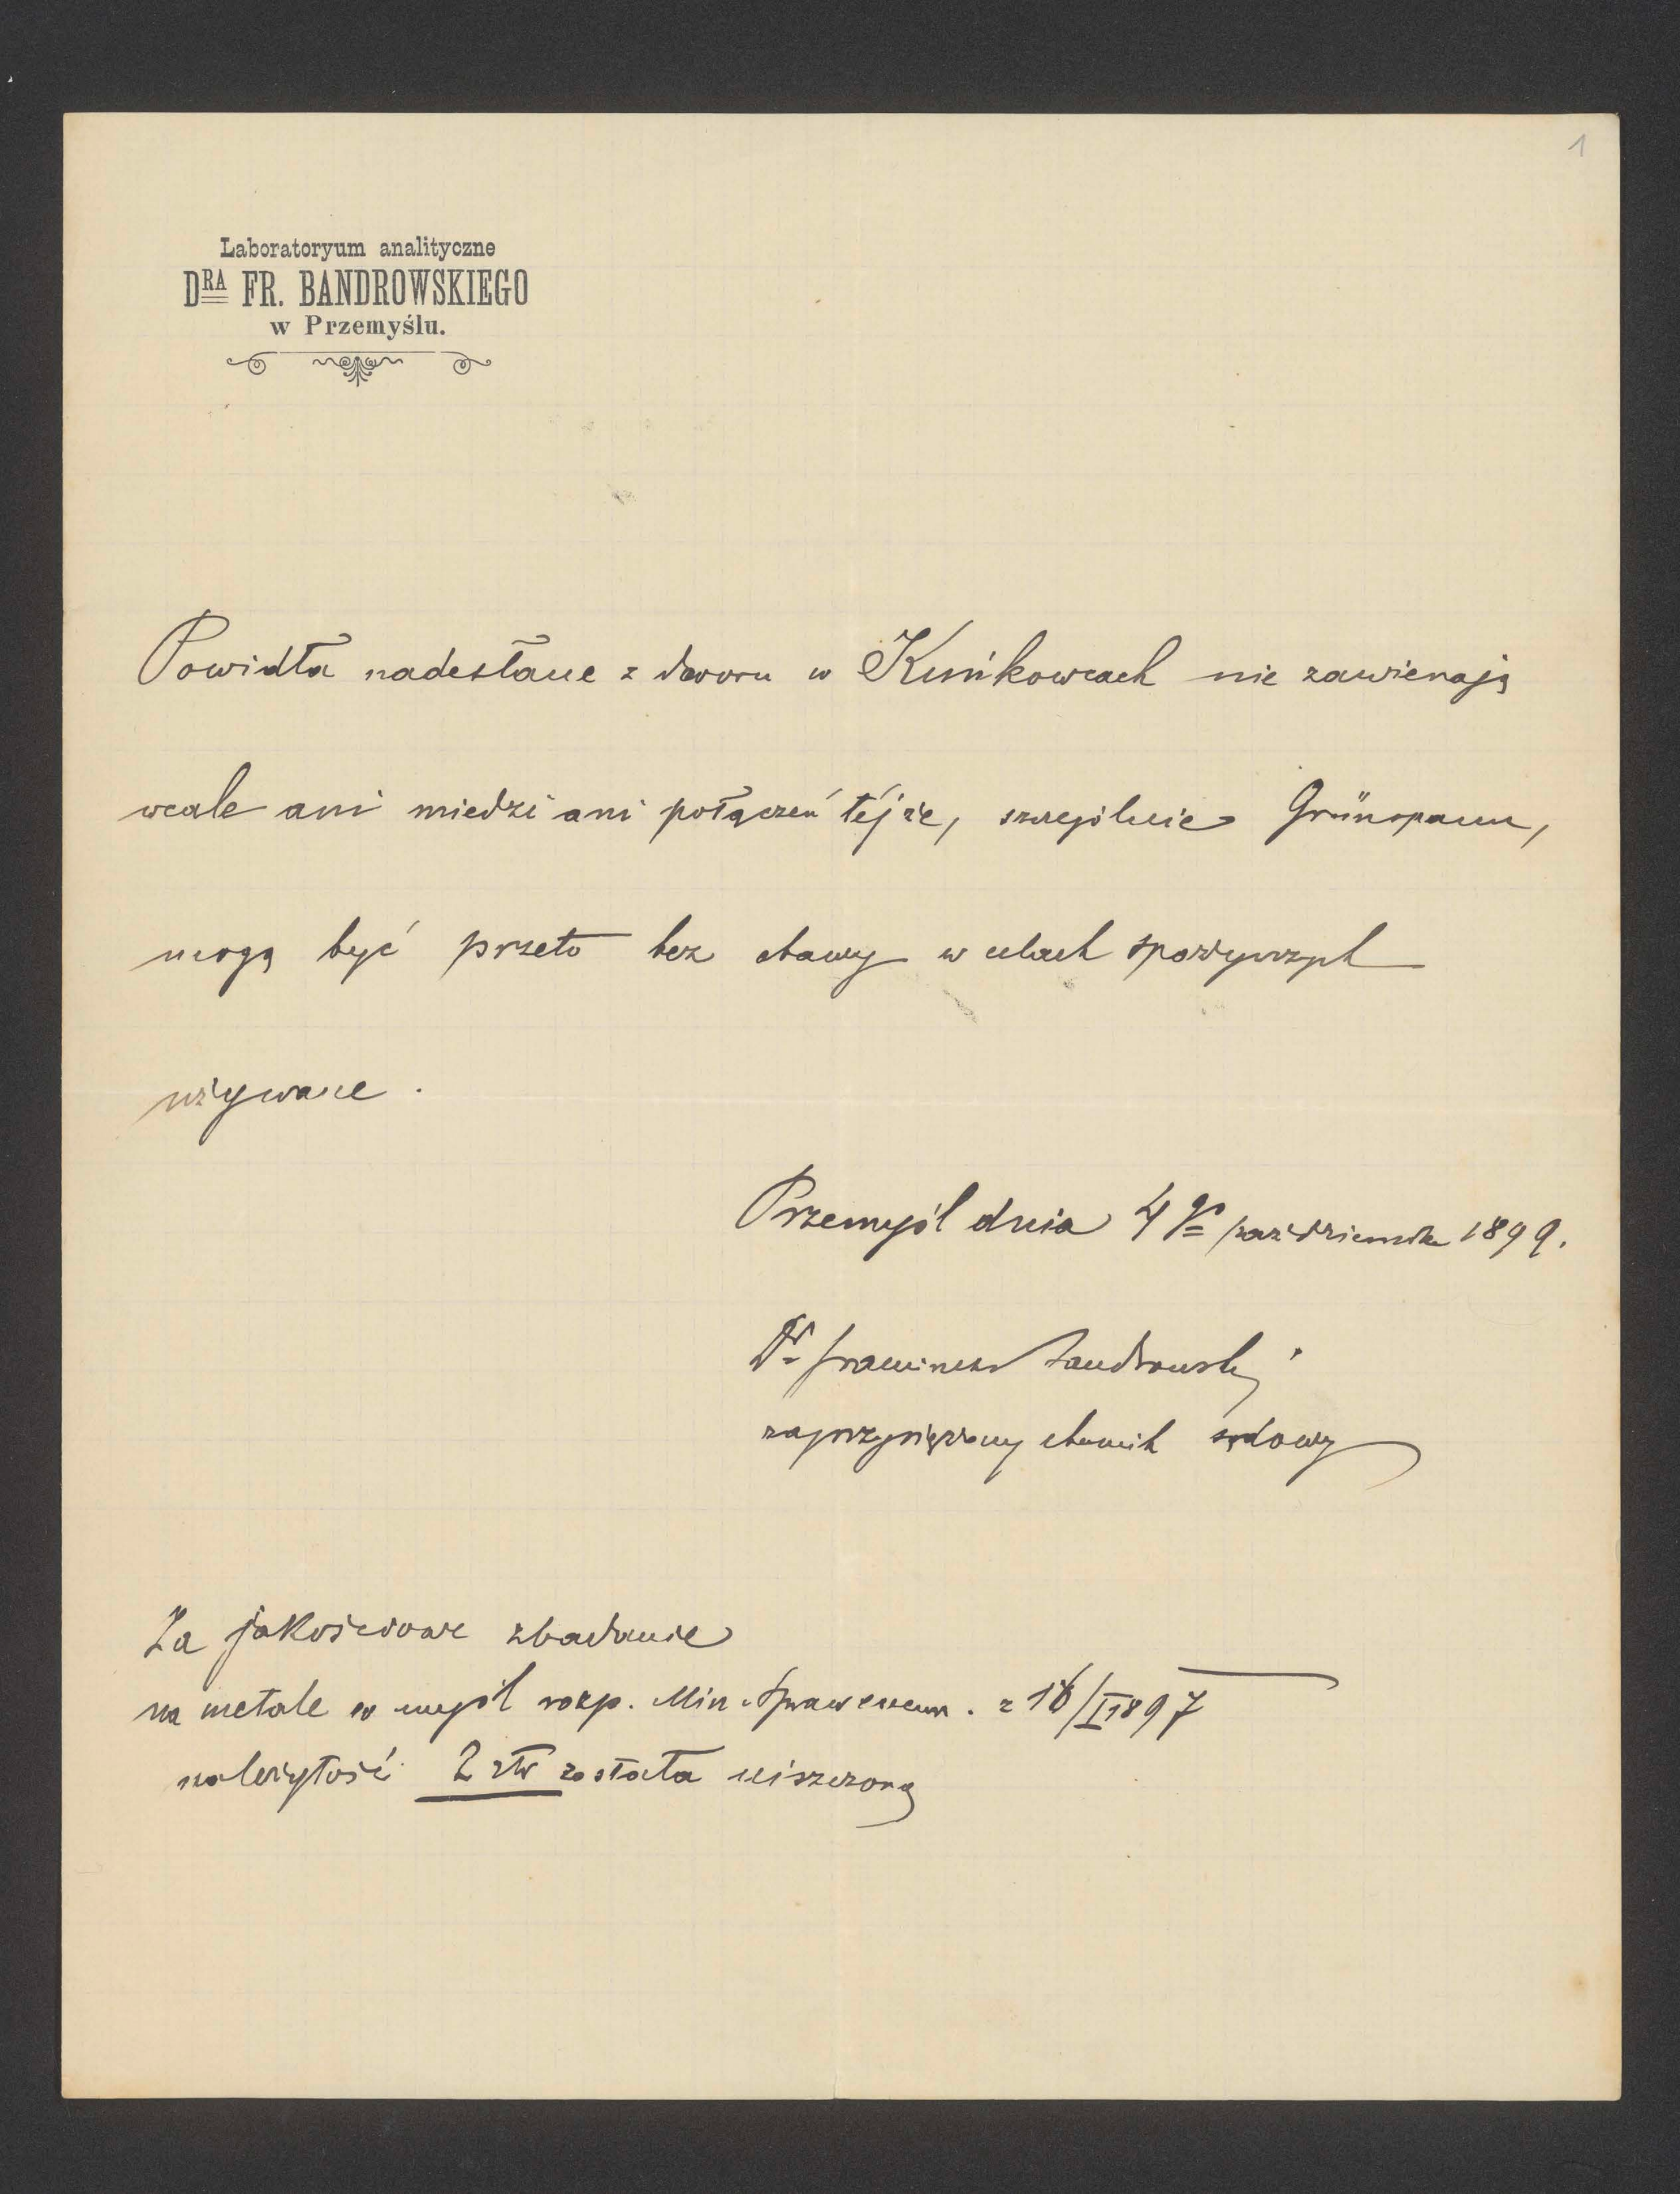 1
Laboratoryum analityczne
DRA FR. BANDROWSKIEGO
w Przemyślu.
Powidła nadesłane z dworu w Kuńkowcach nie zawierają
wcale ani miedzi ani połączeń tejże, szczególnie Grünspanu,
mogą być przeto bez obawy w celach spożywczych
używane.
Przemyśl dnia 4go października 1899.
Dr Franciszek Bandrowski
zaprzysiężony chemik sądowy
Za jakościowe zbadanie
na metale w myśl rozp. Min. Spraw wewn. z 16/I 1897
należytość 2 złr została uiszczoną